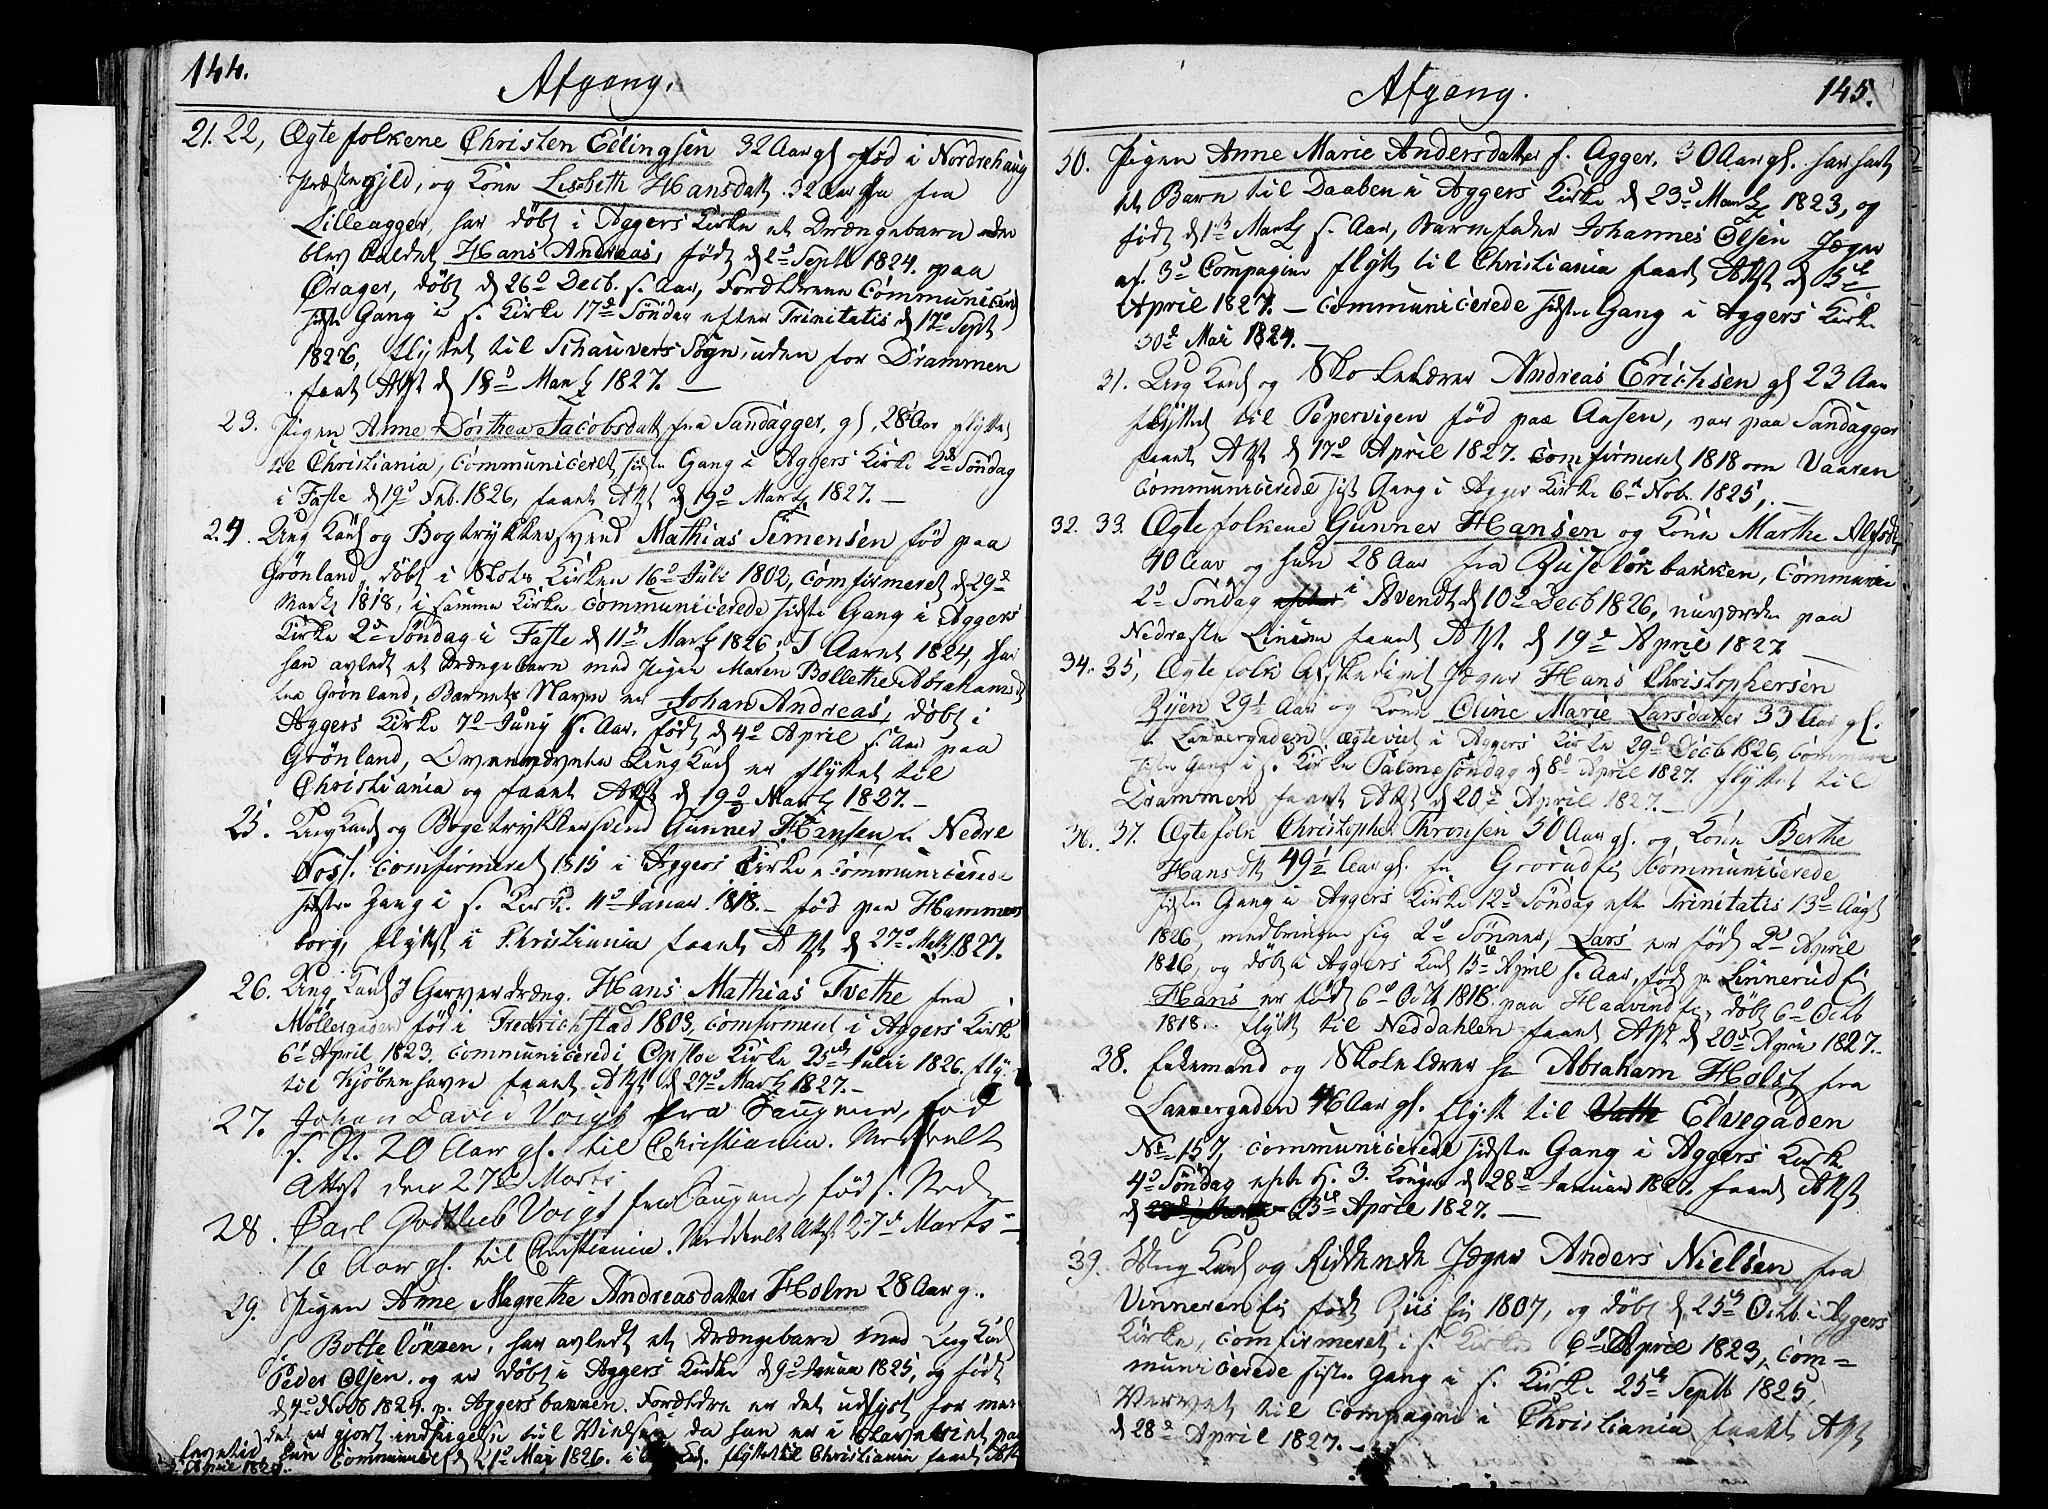 144.
Afgang.
21. 22, Ægtefolkene Christen Edlingsen 32 Aar gl. født i Nordrehaug
Præstegjeld, og Kone Lisebeth Hansdatt. 32 Aar fra
Lilleagger, har døbt i Aggers Kirke et Drængebarn
blev kaldet Hans Andreas, født d 2d Septb 1824. paa
Ørager, døbt d 26d Decb. s. Aar, Communicerd
sidste Gang i s. Kirke 17d Søndag efter Trinitatis d 17d Sept
1826, flyttet til Sogn, uden for Drammen
faaet Atst d 18d Martz 1827. —
23. Pigen Anne Dorthea Jacobsdatt fra Sandagger, gl, 28 Aar flyttet
til Christiania, Communiceret sidste Gang i Aggers Kirke 2d Søndag
i Faste d 19d Feb. 1826, faaet Atst d 19d Martz 1827. —
24. Ung Karl og Bogtrykkersvend Mathias Semensen fød paa
Grønland, døbt i Kirken 16d Juli 1802, Comfirmeret d 29d
Martz 1818, i samme Kirke Communicerede sidste Gang i Aggers
Kirke 2d Søndag i Faste d 11d Martz 1826, I Aaret 1824, har
han avled et Drængebarn med Pigen Maren Bollethe Abrahamsd
fra Grønland, Barnets Navn er Johan Andreas, døbt i
Aggers Kirke 7d Juny s. Aar, født d 4d April s. Aar paa
Grønland, Ung Karl er flyttet til
Christiania og faaet Atst d 19d Martz 1827. —
25. Ung Karl og Bogetrykkersvend Gunner Hansen f. Nedre
Foss. Comfirmeret 1815 i Aggers Kirke Communicerede
sidste Gang i s. Kirke. Januar 1818. — fød paa Hammers
borg, flyttet i Christiania faaet Atst d 27d Martz 1827.
26. Ung Karl Garverdræng. Hans Mathias Tvethe fra
Møllergaden fød i Fredrichstad 1803, Comfirmeret i Aggers Kirke
6d April, 1823, Communicered i Opsloe Kirke 25d Julii 1826. fly:
til Kjøbenhavn faaet Atst d 27d Martz 1827. —
27. Johan David Voigt fra Saugene, fød
s. St. 20 Aar gl. til Christiania. Meddeelt
Attest den 27de Marts
28. Carl Gottlieb Voigt fra Saugene, fød s. Sted
16 Aar gl. til Christiania. Meddeelt Attst 27d Marts
29. Pigen Anne Magrethe Andreasdatter Holm 28 Aar g.
f. Bolteløkken, har avledt et Drængebarn med Ung Karl
Peder Olsen. og er døbt i Aggers Kirke d 9d Januar 1825, og født
d 4d Novb 1824. p. Aggersbakken. er det udlyst for men
det er gjort indsigelse til Vielsen da han er i Slaveriet paa
hun Communiceret d 21d Mai 1826. i Kirke. flyttet til Christiania faaet Atst
April 1827.
Afgang.
145.
30. Pigen Anne Marie Andersdatter f. Agger. 30 Aar gl. har havt
et Barn til Daaben i Aggers Kirke d 23d Martz 1823, og
født d 1d Martz s. Aar, Barnefader Johannes Olsen Jæger
af. 3d Compagnie flytt til Christiania faaet Atst d
April 1827. — Communicerede sidste Gang i Aggers Kirke
30d Mai 1824. —
31. Ung Karl og Skolelærer Andreas Erichsen gl 23 Aar
flyttet til Pepervigen fød paa Aasen, var paa Sandagger
faaet Atst d 17d April 1827. Comfirmeret 1818 om Vaaren
Communicerede sist Gang i Agger Kirke 6d Nob. 1825, —
32. 33. Ægtefolkene Gunner Hansen og Kone Marthe
40 Aar og hun 28 Aar fra Ruseløkbakken, Communice
2d Søndag i Avendt d 10d Decb 1826, nuværende paa
Nederste faaet Atst. d 19d April 1827 —
34. 35, Ægtefolk Afskediget Jæger Hans Christophersen
Ryen 29½ Aar og Kone Oline Marie Larsdatter 33 Aar gl.
f. Lakkergaden ægteviet i Aggers Kirke 29d Decb 1826, Commune
sidste Gang i s. Kirke Palmesøndag d 8d April 1827. flyttet til
Drammen faaet Atst d 20d April 1827. —
36. 37. Ægtefolk Christopher Thronsen 50 Aar gl. og Kone Berthe
Hansdtt 49½ Aar gl. fra Grorud Communicerede
sidste Gang i Aggers Kirke 12d Søndag eft Trinitatis 13d Augt
1826, medbringer sig 2d Sønner, Lars er fød 2d April
1816, og døbt i Aggers Kirk 15d April s. Aar, fød p. Linnerud
Hans er født 6d Octb 1818 paa døbt 6d Octb
1818. flytt til Neddahlen faaet Atst d 20d April 1827. —
38. Enkemand og Skolelærer Hr Abraham Holst fra
Lakkergaden 46 Aar gl. flytt til Elvegaden
No 157, Communicerede sidste Gang i Aggers Kirke
4d Søndag epth H. 3. Konger d 28d Januar 182. faaet Atst
d April 1827. —
39. Ung Karl og Ridende Jæger Anders Nielsen fra
Vinneren født 1807, og døbt d 25d Octb. i Aggers
Kirke, Comfirmeret i s. Kirke 6d April 1823, Com=
municerede sidste Gang i s. Kirke 25d Septb 1825,
Vervet til Compagni i Christiania faaet Atst
d 28d April 1827. —